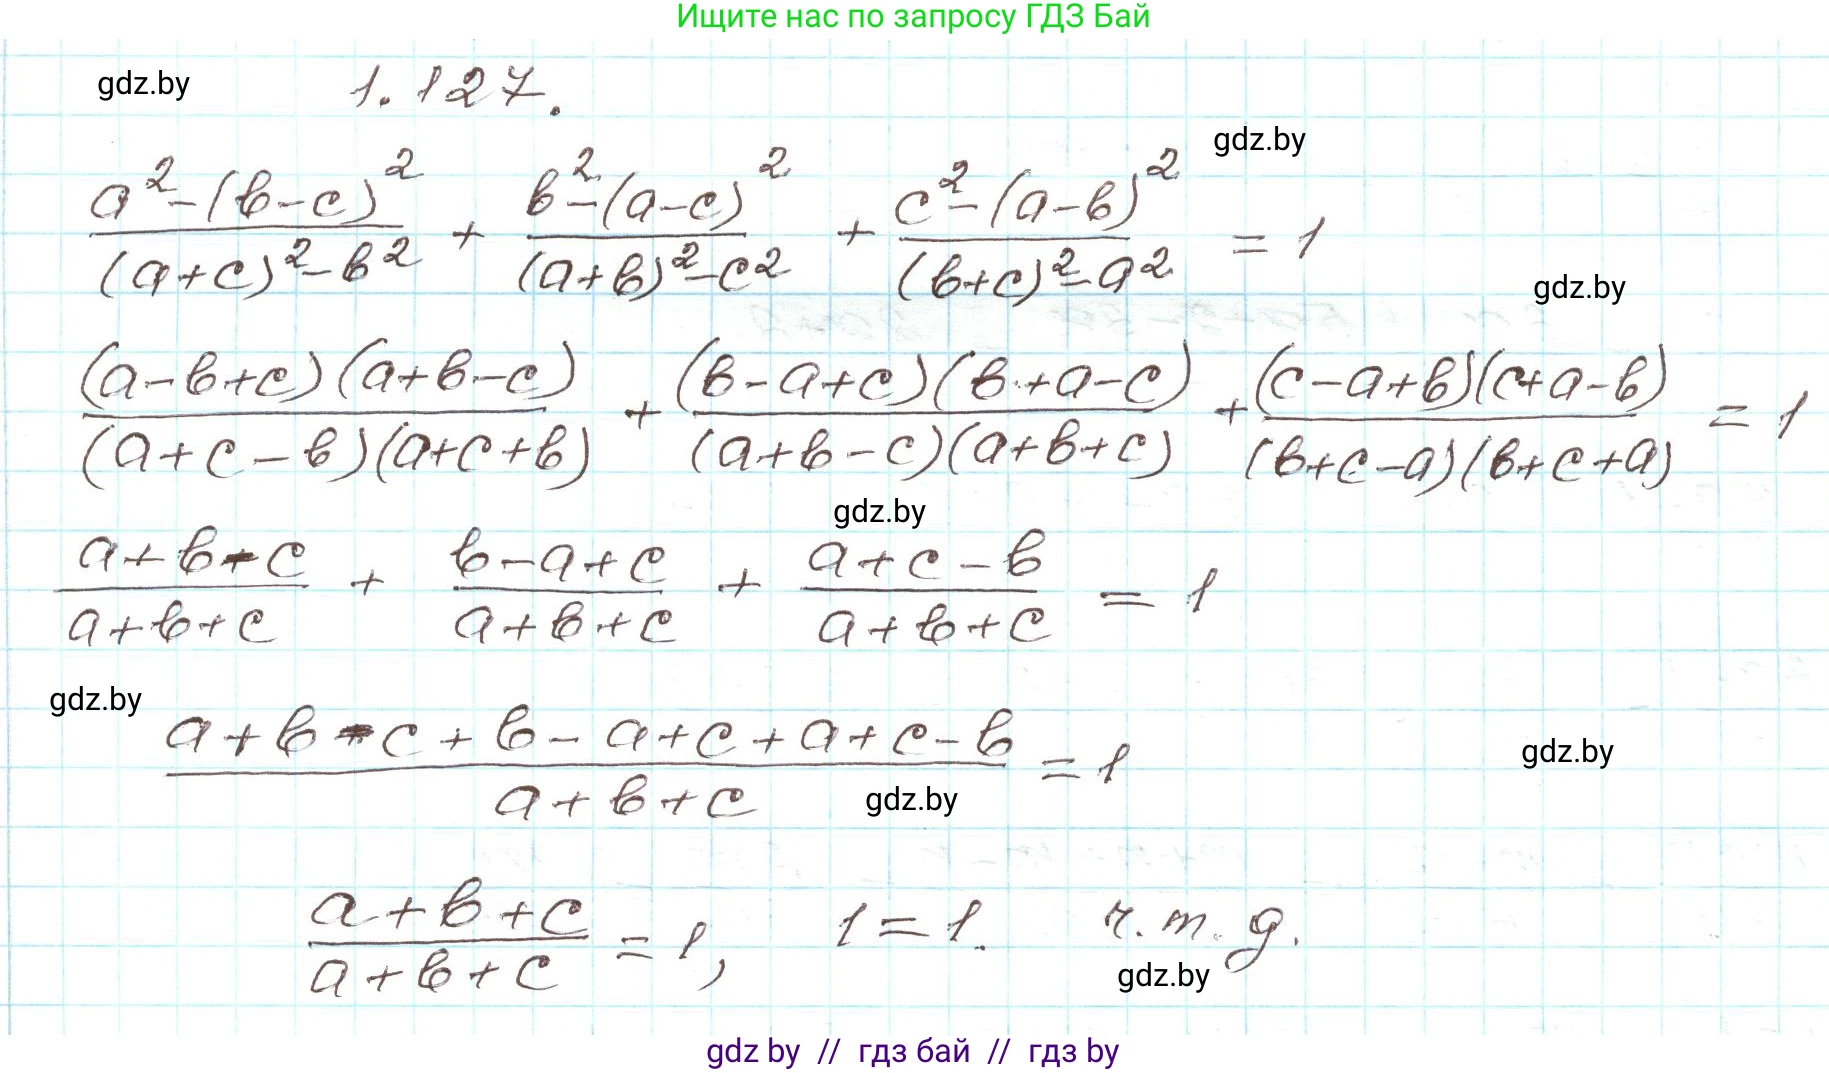 Ищите нас по запросу ГДЗ Бай
gdz.by
1.127.
gdz.by
(a²-(в-c)²)/((a+c)²-в²) + (в²-(a-c)²)/((a+в)²-c²) + (c²-(a-в)²)/((в+c)²-a²) = 1
gdz.by
((a-в+c)(a+в-c))/((a+c-в)(a+c+в)) + ((в-a+c)(в+a-c))/((a+в-c)(a+в+c)) + ((c-a+в)(c+a-в))/((в+c-a)(в+c+a)) = 1
gdz.by
(a+в-c)/(a+в+c) + (в-a+c)/(a+в+c) + (a+c-в)/(a+в+c) = 1
gdz.by
(a+в-c+в-a+c+a+c-в)/(a+в+c) = 1
gdz.by
gdz.by
(a+в+c)/(a+в+c) = 1, 1=1. ч.т.д.
gdz.by
gdz by // гдз бай // гдз by